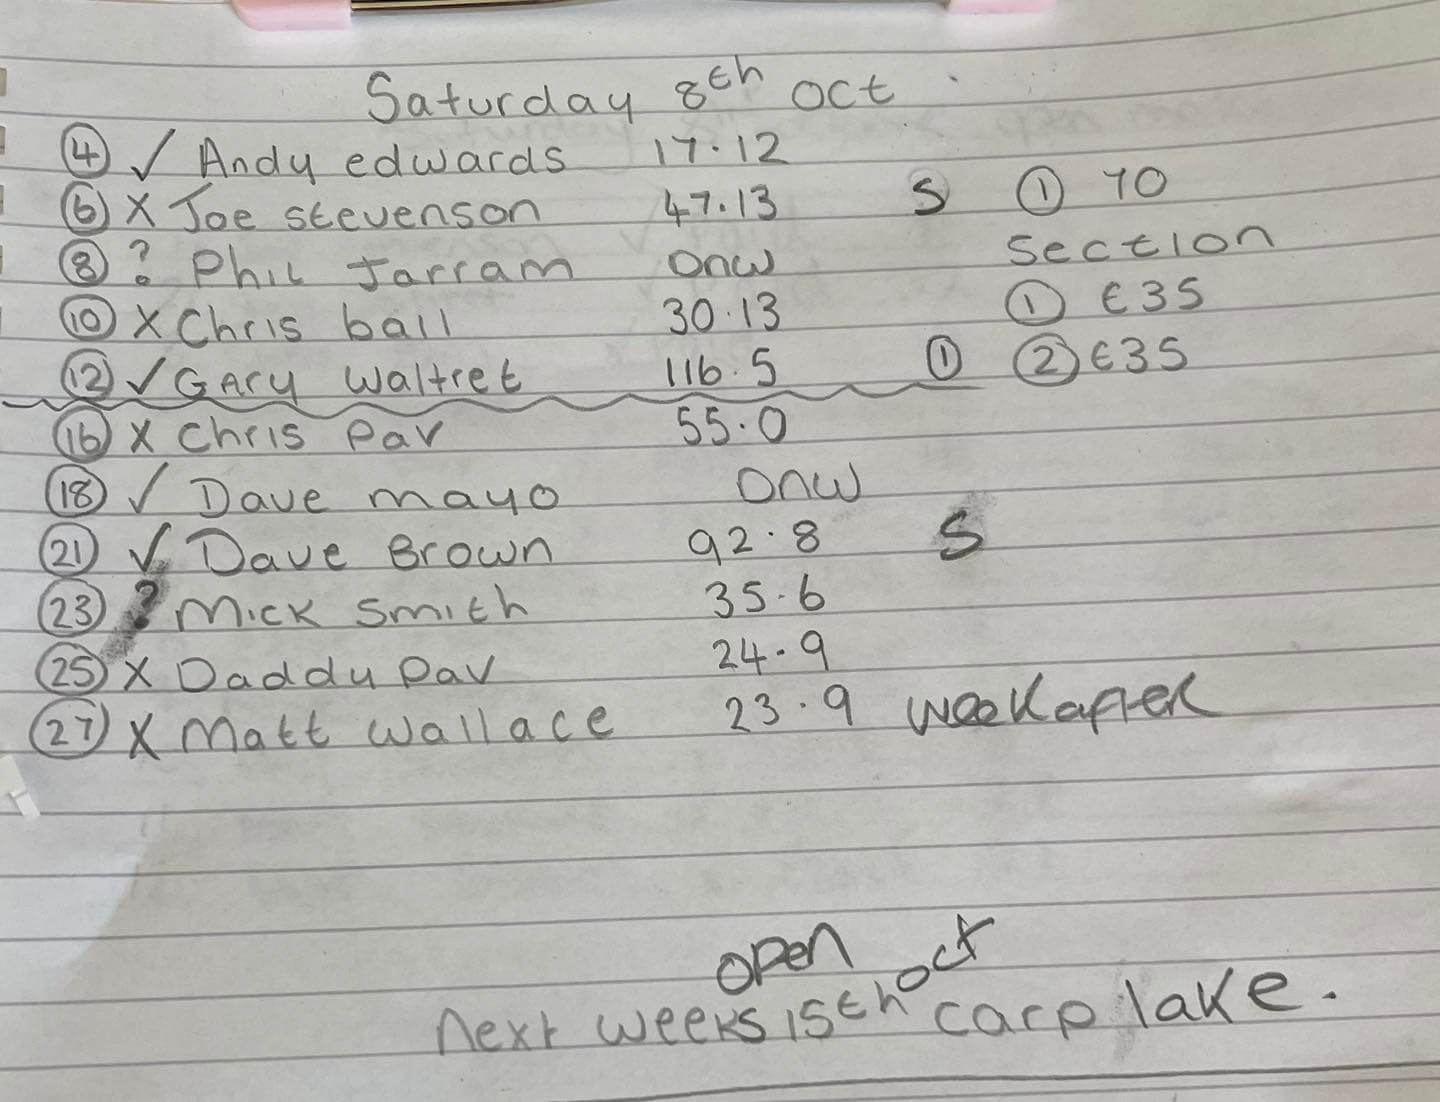 Saturday 8th oct
④ ✓ Andy edwards 17.12
⑥ X Joe stevenson 47.13 S ① 70
section
⑧ ? Phil Jarram Dnw
⑩ X Chris ball 30.13 ① €35
⑫ ✓ Gary Waltret 116.5 ① ② €35
⑯ X Chris Pav 55.0
⑱ ✓ Dave mayo Dnw
㉑ ✓ Dave Brown 92.8 S
㉓ ? Mick Smith 35.6
㉕ X Daddy Pav 24.9
㉗ X Matt Wallace 23.9 week after
open
next weeks 15th oct carp lake.